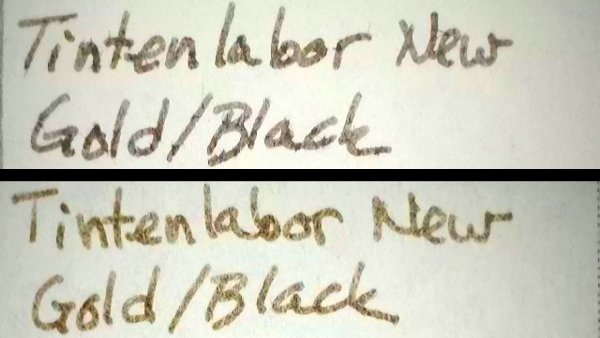 Tintenlabor New
Gold/Black
Tintenlabor New
Gold/Black